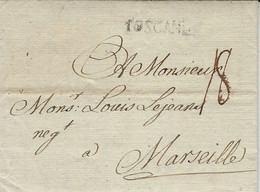 TOSCANE
A Monsieur
18
Mons.r Louis Lejeans
neg.t
a
Marseille